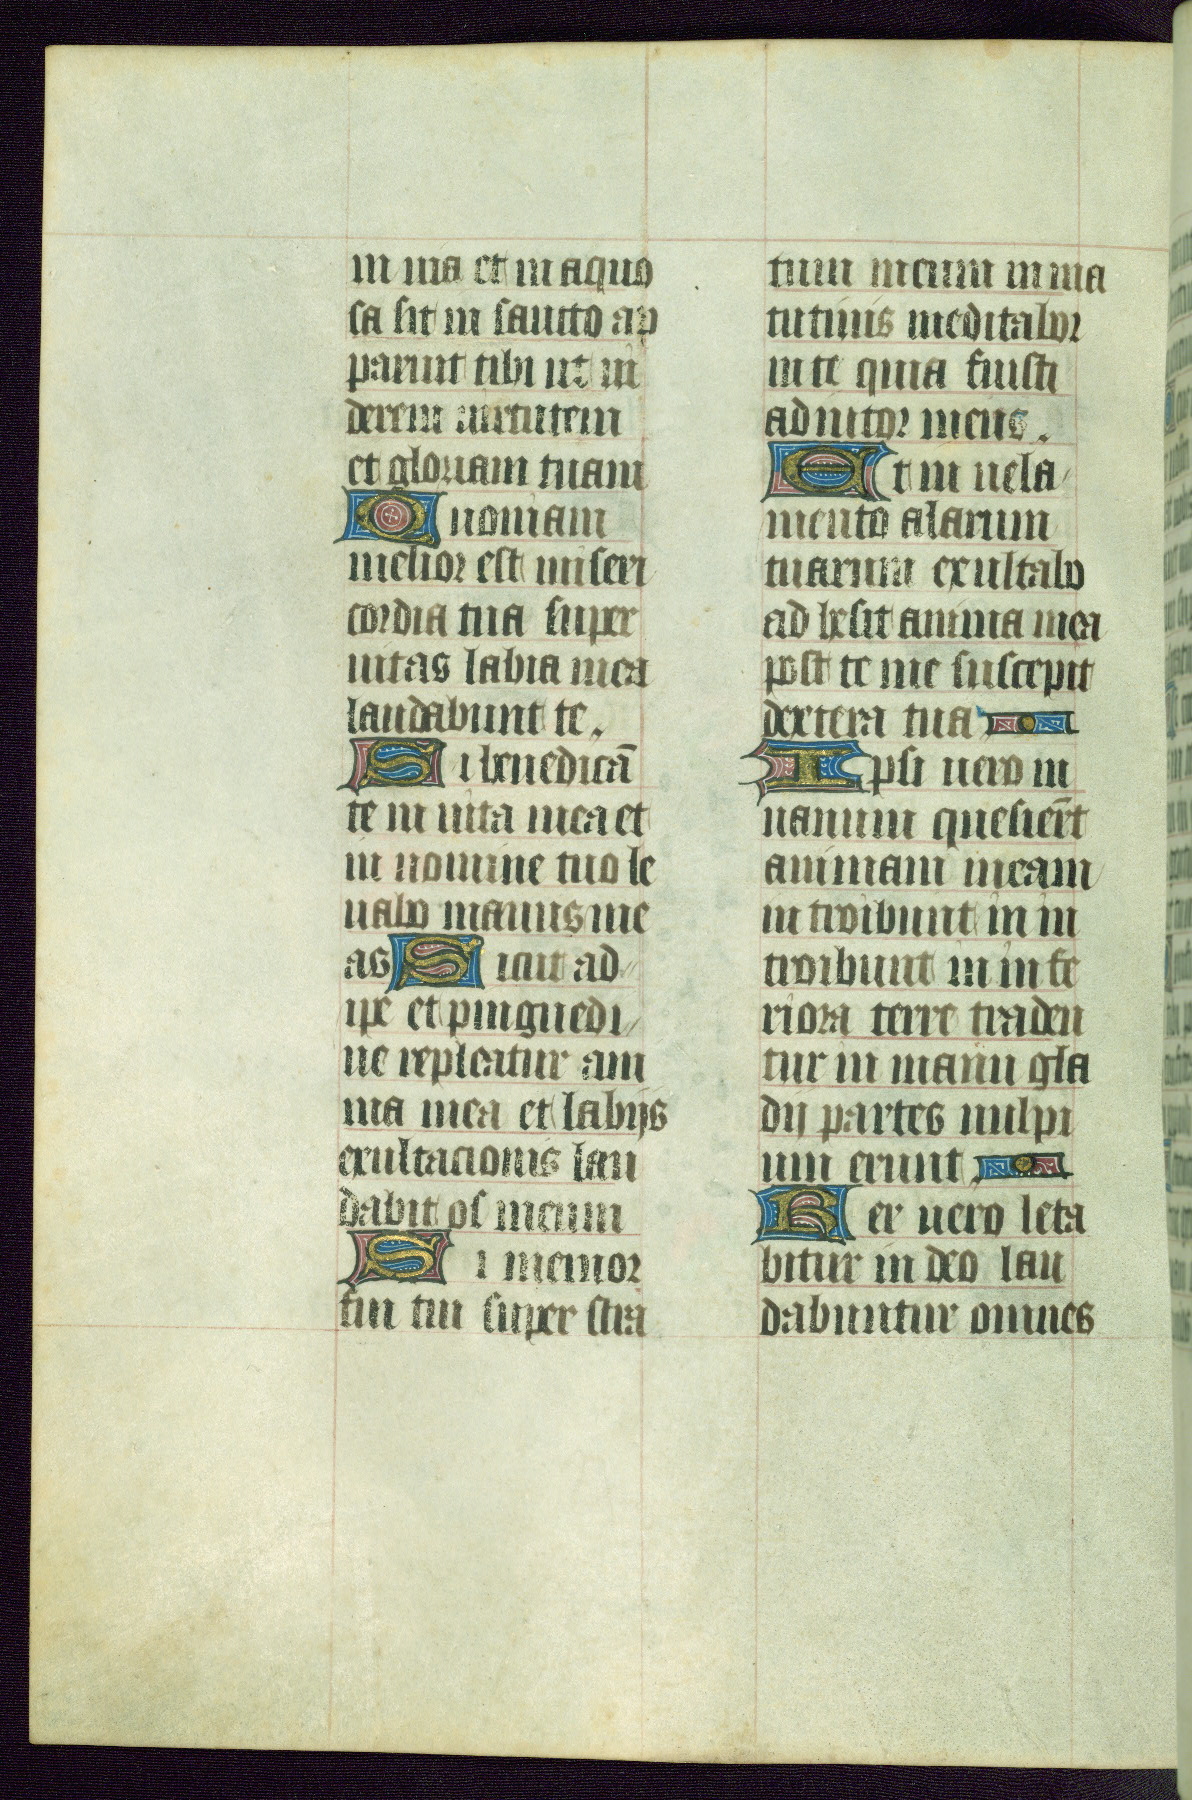 in uia et in aquo
sa sit in sancto ap
parint tibi ut ui
derem uirtutem
et gloriam tuam
Quoniam
melior est miseri
cordia tua super
uitas labia mea
laudabunt te.
Si benedicā
te in uita mea et
in nomine tuo le
uabo manus me
as Sicut ad
ipe et pinguedi
ne repleatur ani
ma mea et labijs
exultacionis lau
dabit os meum
Si memor
fui tui super stra
tum meum in ma
tutinis meditabor
in te quia fuisti
adiutor meus.
Et in uela
mento alarum
tuarum exultabo
ad hesit anima mea
post te me suscepit
dextera tua
Ipsi uero in
uanum quesier̄t
animam meam
introibunt in in
troibunt in infe
riora terre traden
tur in manu gla
dij partes uulpi
um erunt.
Rex uero leta
bitur in deo lau
dabuntur omnes